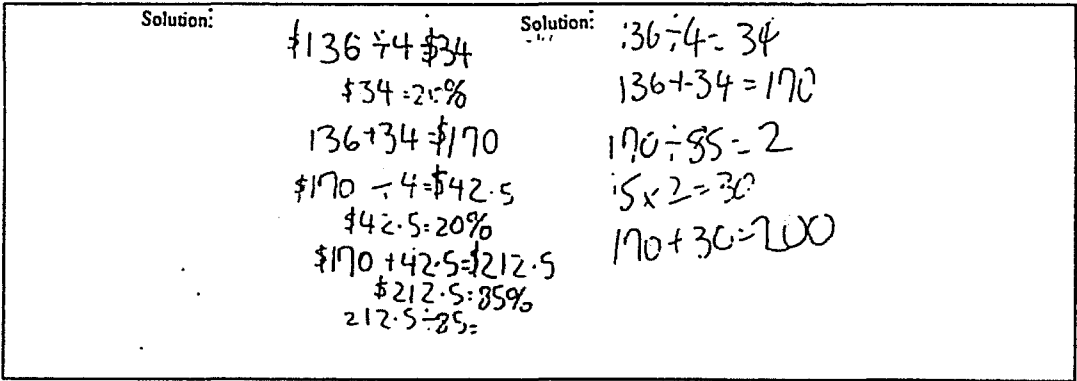 Solution:
$136 ÷4 $34
$34 = 20%
136+34=$170
$170 ÷ 4=$42.5
$42.5=20%
$170 +42.5=$212.5
$212.5=85%
212.5÷85=
Solution:
36÷4= 34
136+34=170
170÷85=2
15x2=30
170+30=200